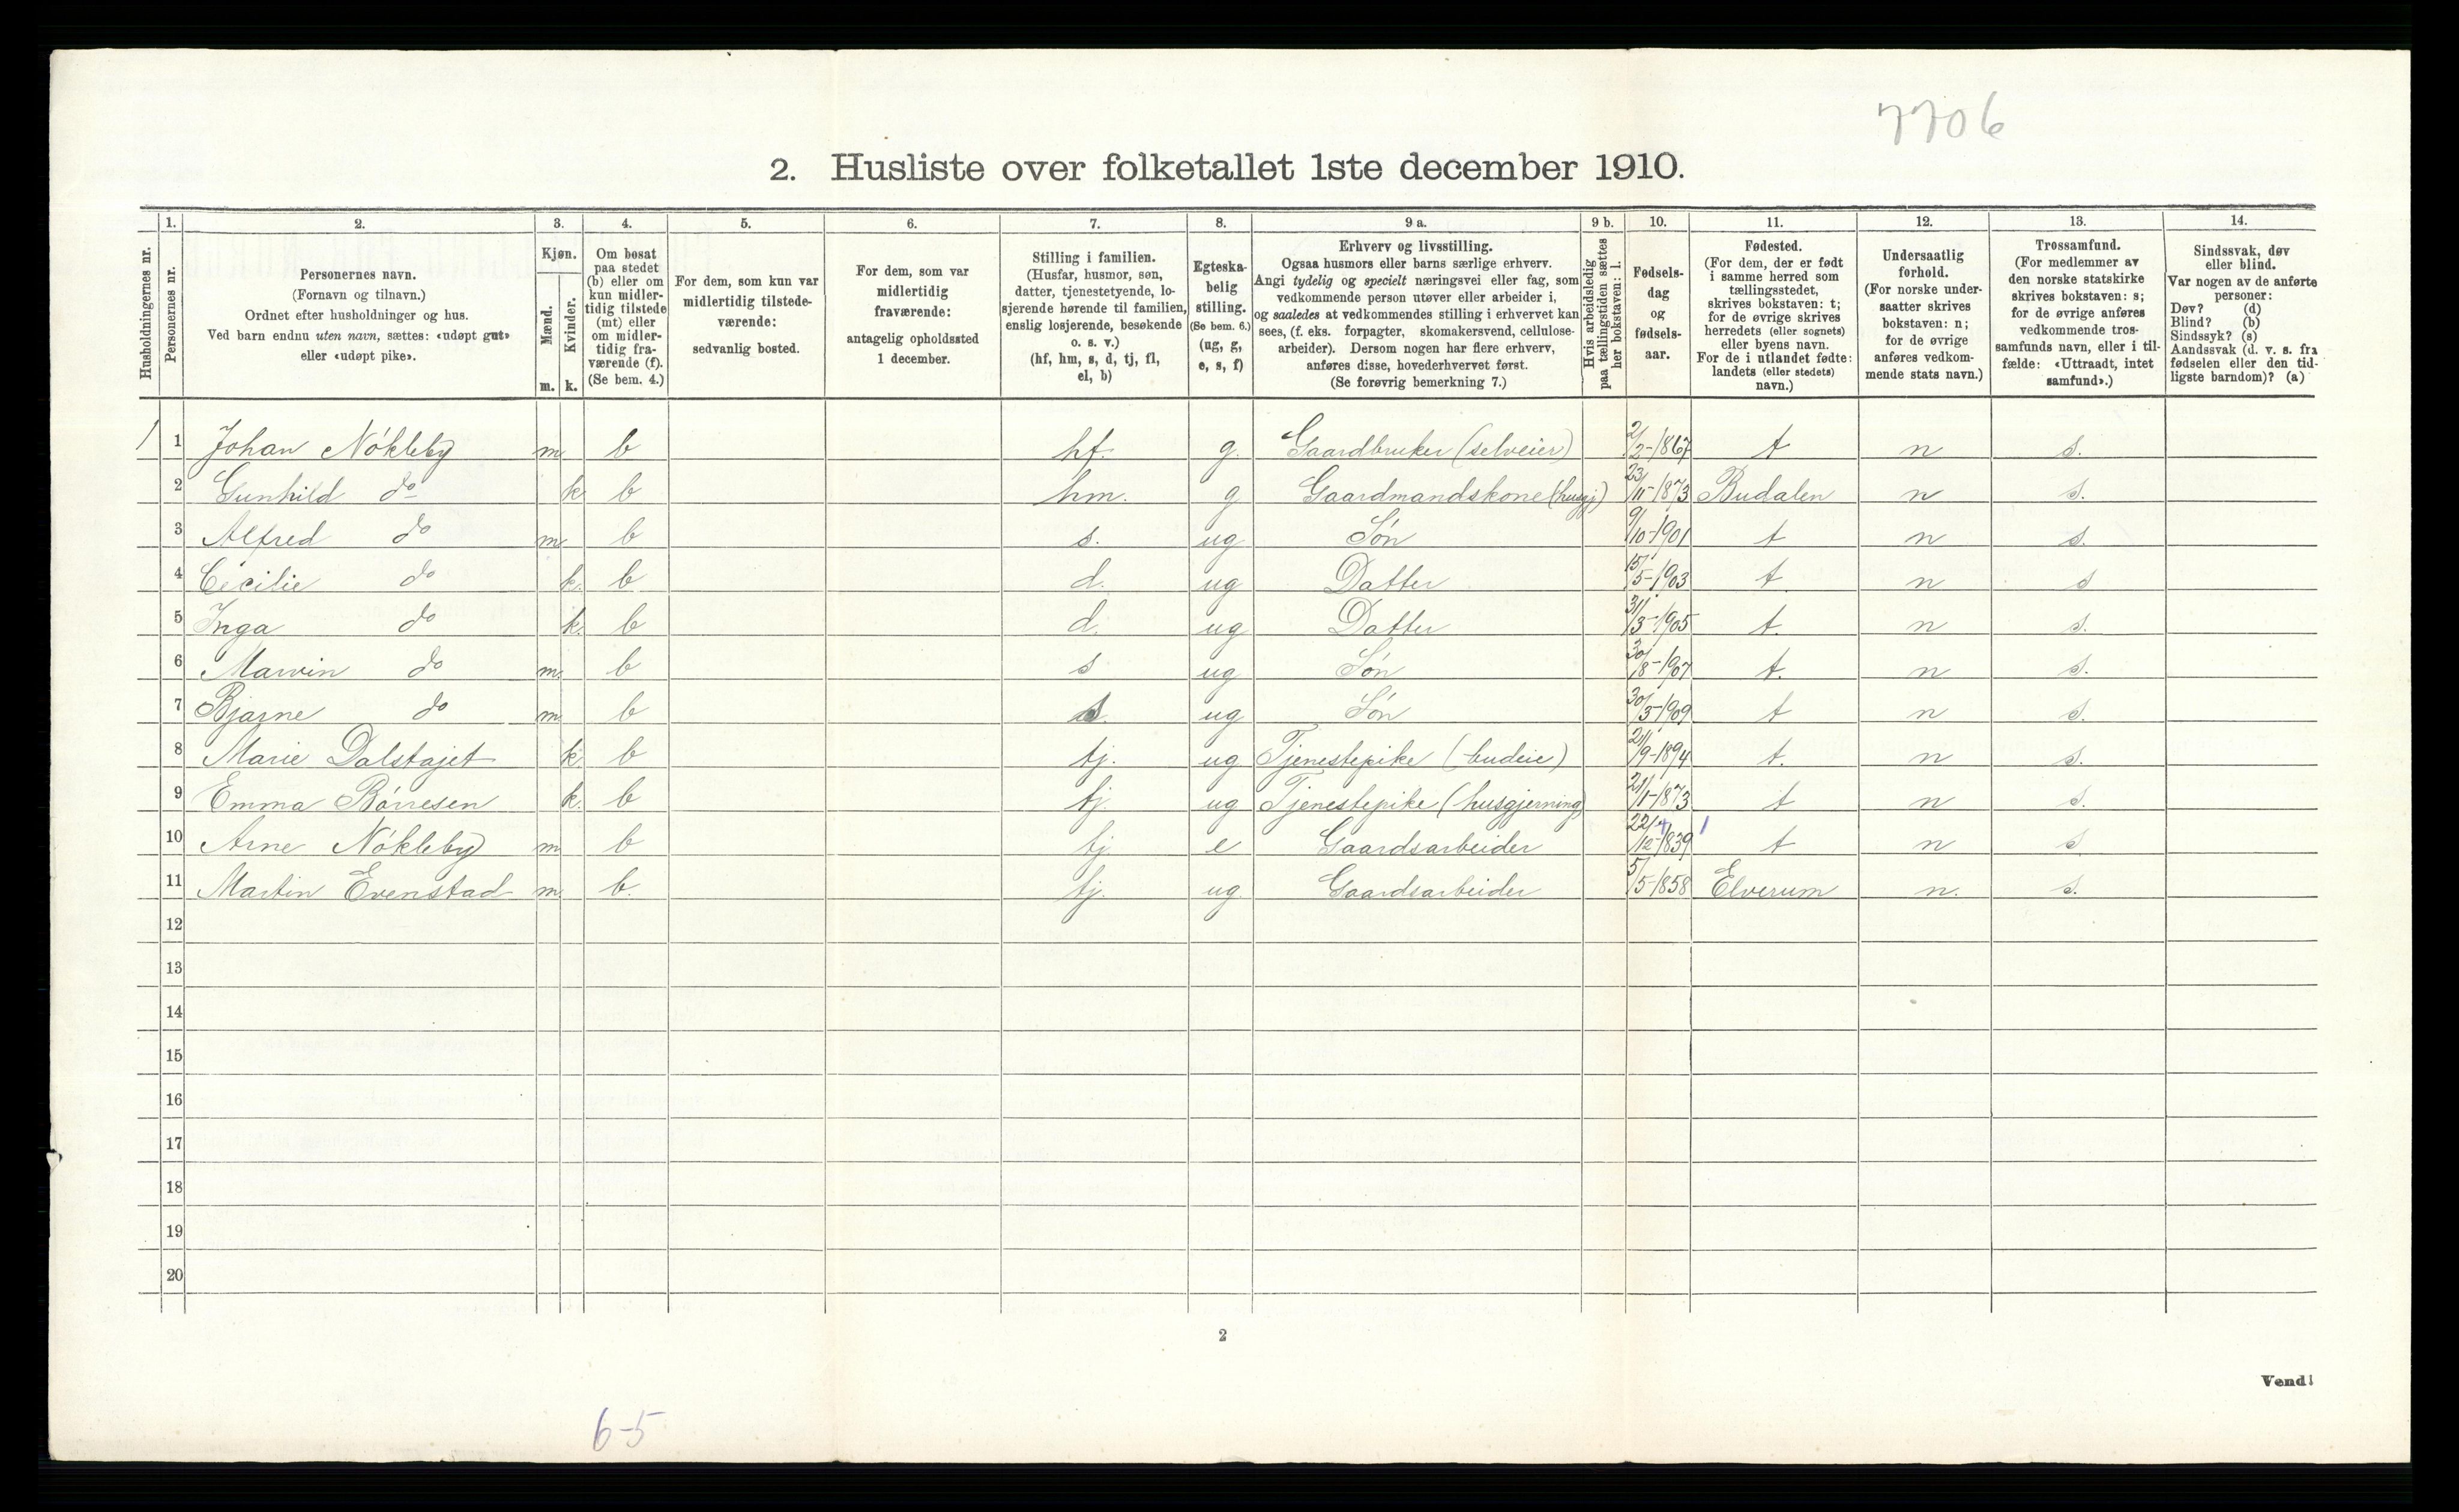 7706
2. Husliste over folketallet 1ste december 1910.
Husholdningernes nr.
1.
Personernes nr.
2.
Personernes navn.
(Fornavn og tilnavn.)
Ordnet efter husholdninger og hus.
Ved barn endnu uten navn, sættes: «udøpt gut»
eller «udøpt pike».
3.
Kjøn.
Mænd.
Kvinder.
m. k.
4.
Om bosat
paa stedet
(b) eller om
kun midler-
tidig tilstede
(mt) eller
om midler-
tidig fra-
værende (f).
(Se bem. 4.)
5.
For dem, som kun var
midlertidig tilstede-
værende:
sedvanlig bosted.
6.
For dem, som var
midlertidig
fraværende:
antagelig opholdssted
1 december.
7.
Stilling i familien.
(Husfar, husmor, søn,
datter, tjenestetyende, lo-
sjerende hørende til familien,
enslig losjerende, besøkende
o. s. v.)
(hf, hm, s, d, tj, fl,
el, b)
8.
Egteska-
belig
stilling.
(Se bem. 6.)
(ug, g,
e, s, f)
9 a.
Erhverv og livsstilling.
Ogsaa husmors eller barns særlige erhverv.
Angi tydelig og specielt næringsvei eller fag, som
vedkommende person utøver eller arbeider i,
og saaledes at vedkommendes stilling i erhvervet kan
sees, (f. eks. forpagter, skomakersvend, cellulose-
arbeider). Dersom nogen har flere erhverv,
anføres disse, hovederhvervet først.
(Se forøvrig bemerkning 7.)
9 b.
Hvis arbeidsledig
paa tællingstiden sættes
her bokstaven: l.
10.
Fødsels-
dag
og
fødsels-
aar.
11.
Fødested.
(For dem, der er født
i samme herred som
tællingsstedet,
skrives bokstaven: t;
for de øvrige skrives
herredets (eller sognets)
eller byens navn.
For de i utlandet fødte:
landets (eller stedets)
navn.)
12.
Undersaatlig
forhold.
(For norske under-
saatter skrives
bokstaven: n;
for de øvrige
anføres vedkom-
mende stats navn.)
13.
Trossamfund.
(For medlemmer av
den norske statskirke
skrives bokstaven: s;
for de øvrige anføres
vedkommende tros-
samfunds navn, eller i til-
fælde: «Uttraadt, intet
samfund».)
14.
Sindssvak, døv
eller blind.
Var nogen av de anførte
personer:
Døv? (d)
Blind? (b)
Sindssyk? (s)
Aandssvak (d. v. s. fra
fødselen eller den tid-
ligste barndom)? (a)
1 1 Johan Nókleby m b hf. g. Gaardbruker (selveier) 2/2-1867 t n s.
2 Gunhild do k b hm. g Gaardmandskone (husgj) 23/11-1873 Budalen n s.
3 Alfred do m b s. ug Són 9/10-1901 t n s.
4 Cecilie do k. b d. ug Datter 15/5-1903 t. n s
5 Inga do k. b d. ug Datter 31/3-1905 t. n s.
6 Marvin do m. b s ug Són 30/8-1907 t. n s.
7 Bjarne do m b s. ug Són 30/3-1909 t n s.
8 Marie Dalstajet k b tj. ug Tjenestepike (budeie) 21/9-1894 t. n s.
9 Emma Bórresen k. b tj. ug Tjenestepike (husgjerning) 21/1-1873 t n s.
10 Arne Nókleby m b tj. e Gaardsarbeider 22/12-1839 t n s
11 Martin Evenstad m. b. tj. ug. Gaardsarbeider 5/5-1858 Elverum n. s.
12
13
14
15
16
17
18
19
20
2
Vend!
6-5